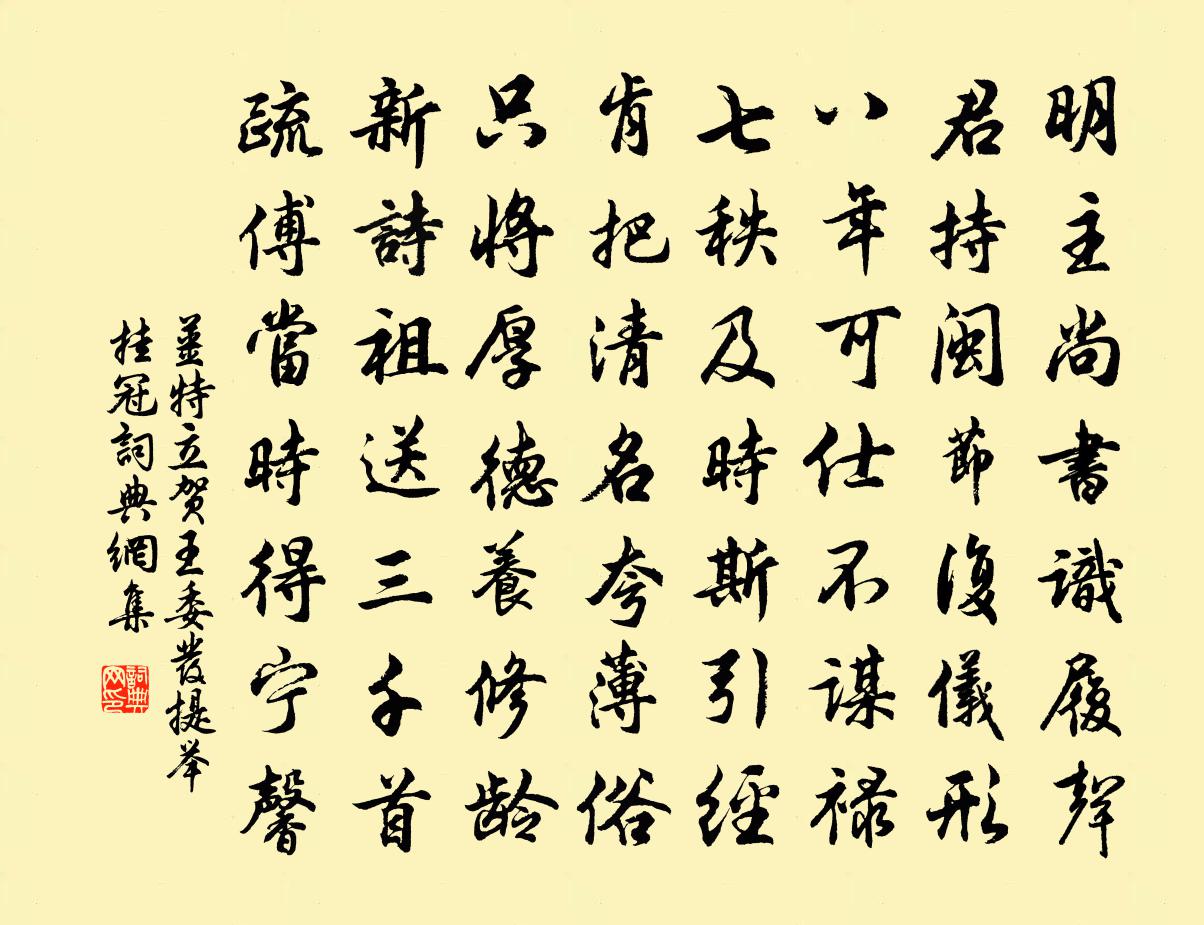 明主尚書識履聲
君持閩節復儀形
八年可仕不謀祿
七秩及時斯引經
肯把清名夸薄俗
只將厚德養修龄
新詩祖送三千首
疏傅當時得宁馨
姜特立贺王委發提举
挂冠詞典網集
詞典网印